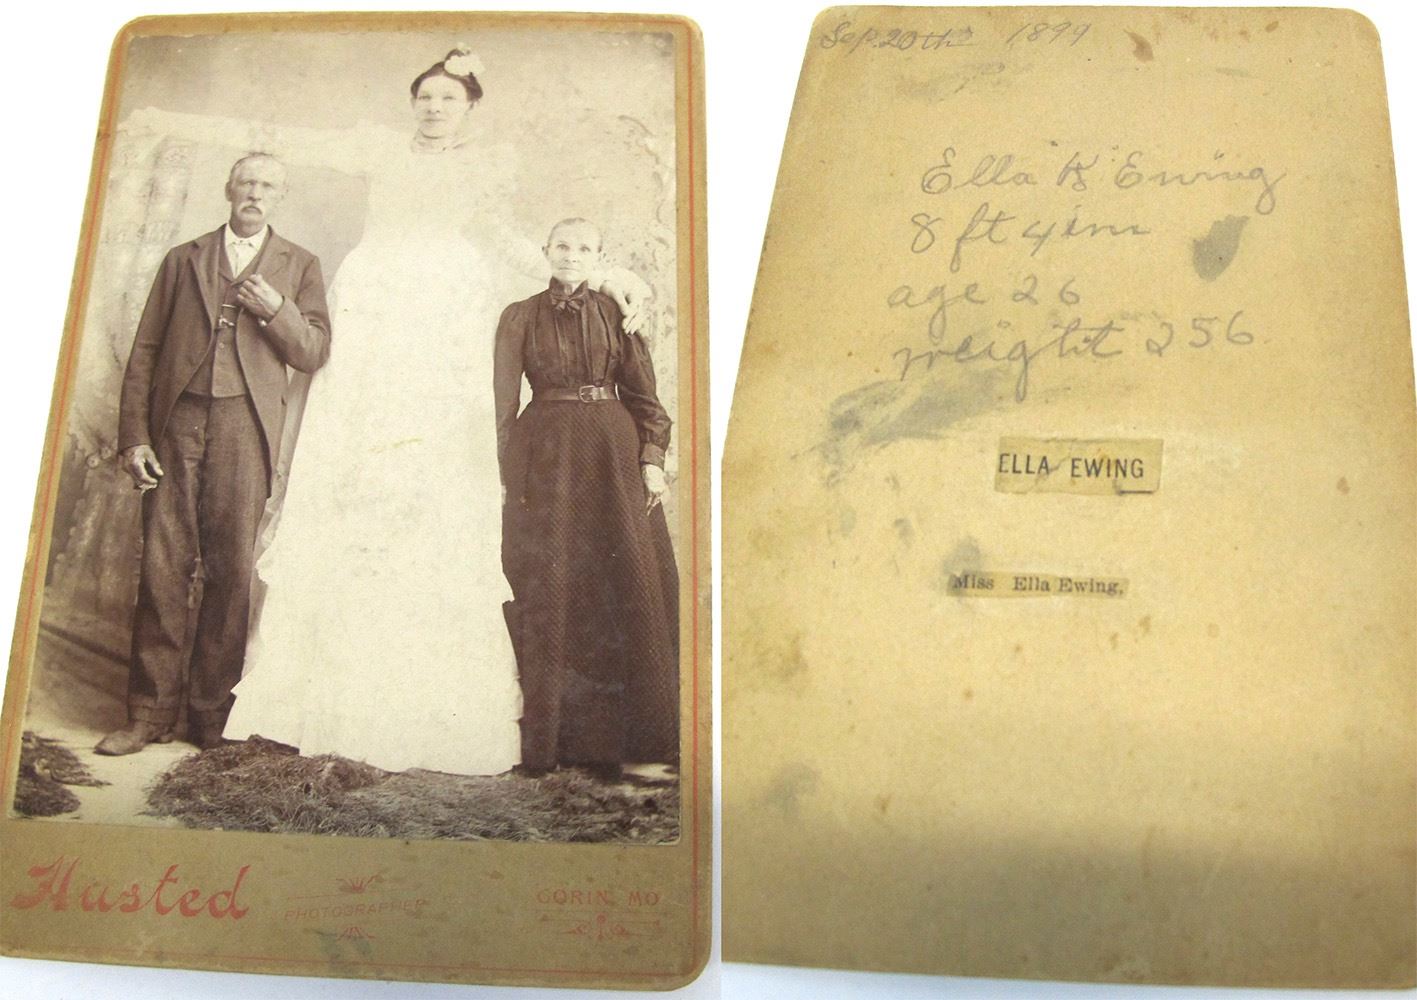 Husted
PHOTOGRAPHER
GORIN, MO
Sep. 20th 1899
Ella "K" Ewing
8 ft 4 in
age 26
weight 256
ELLA EWING
Miss Ella Ewing,